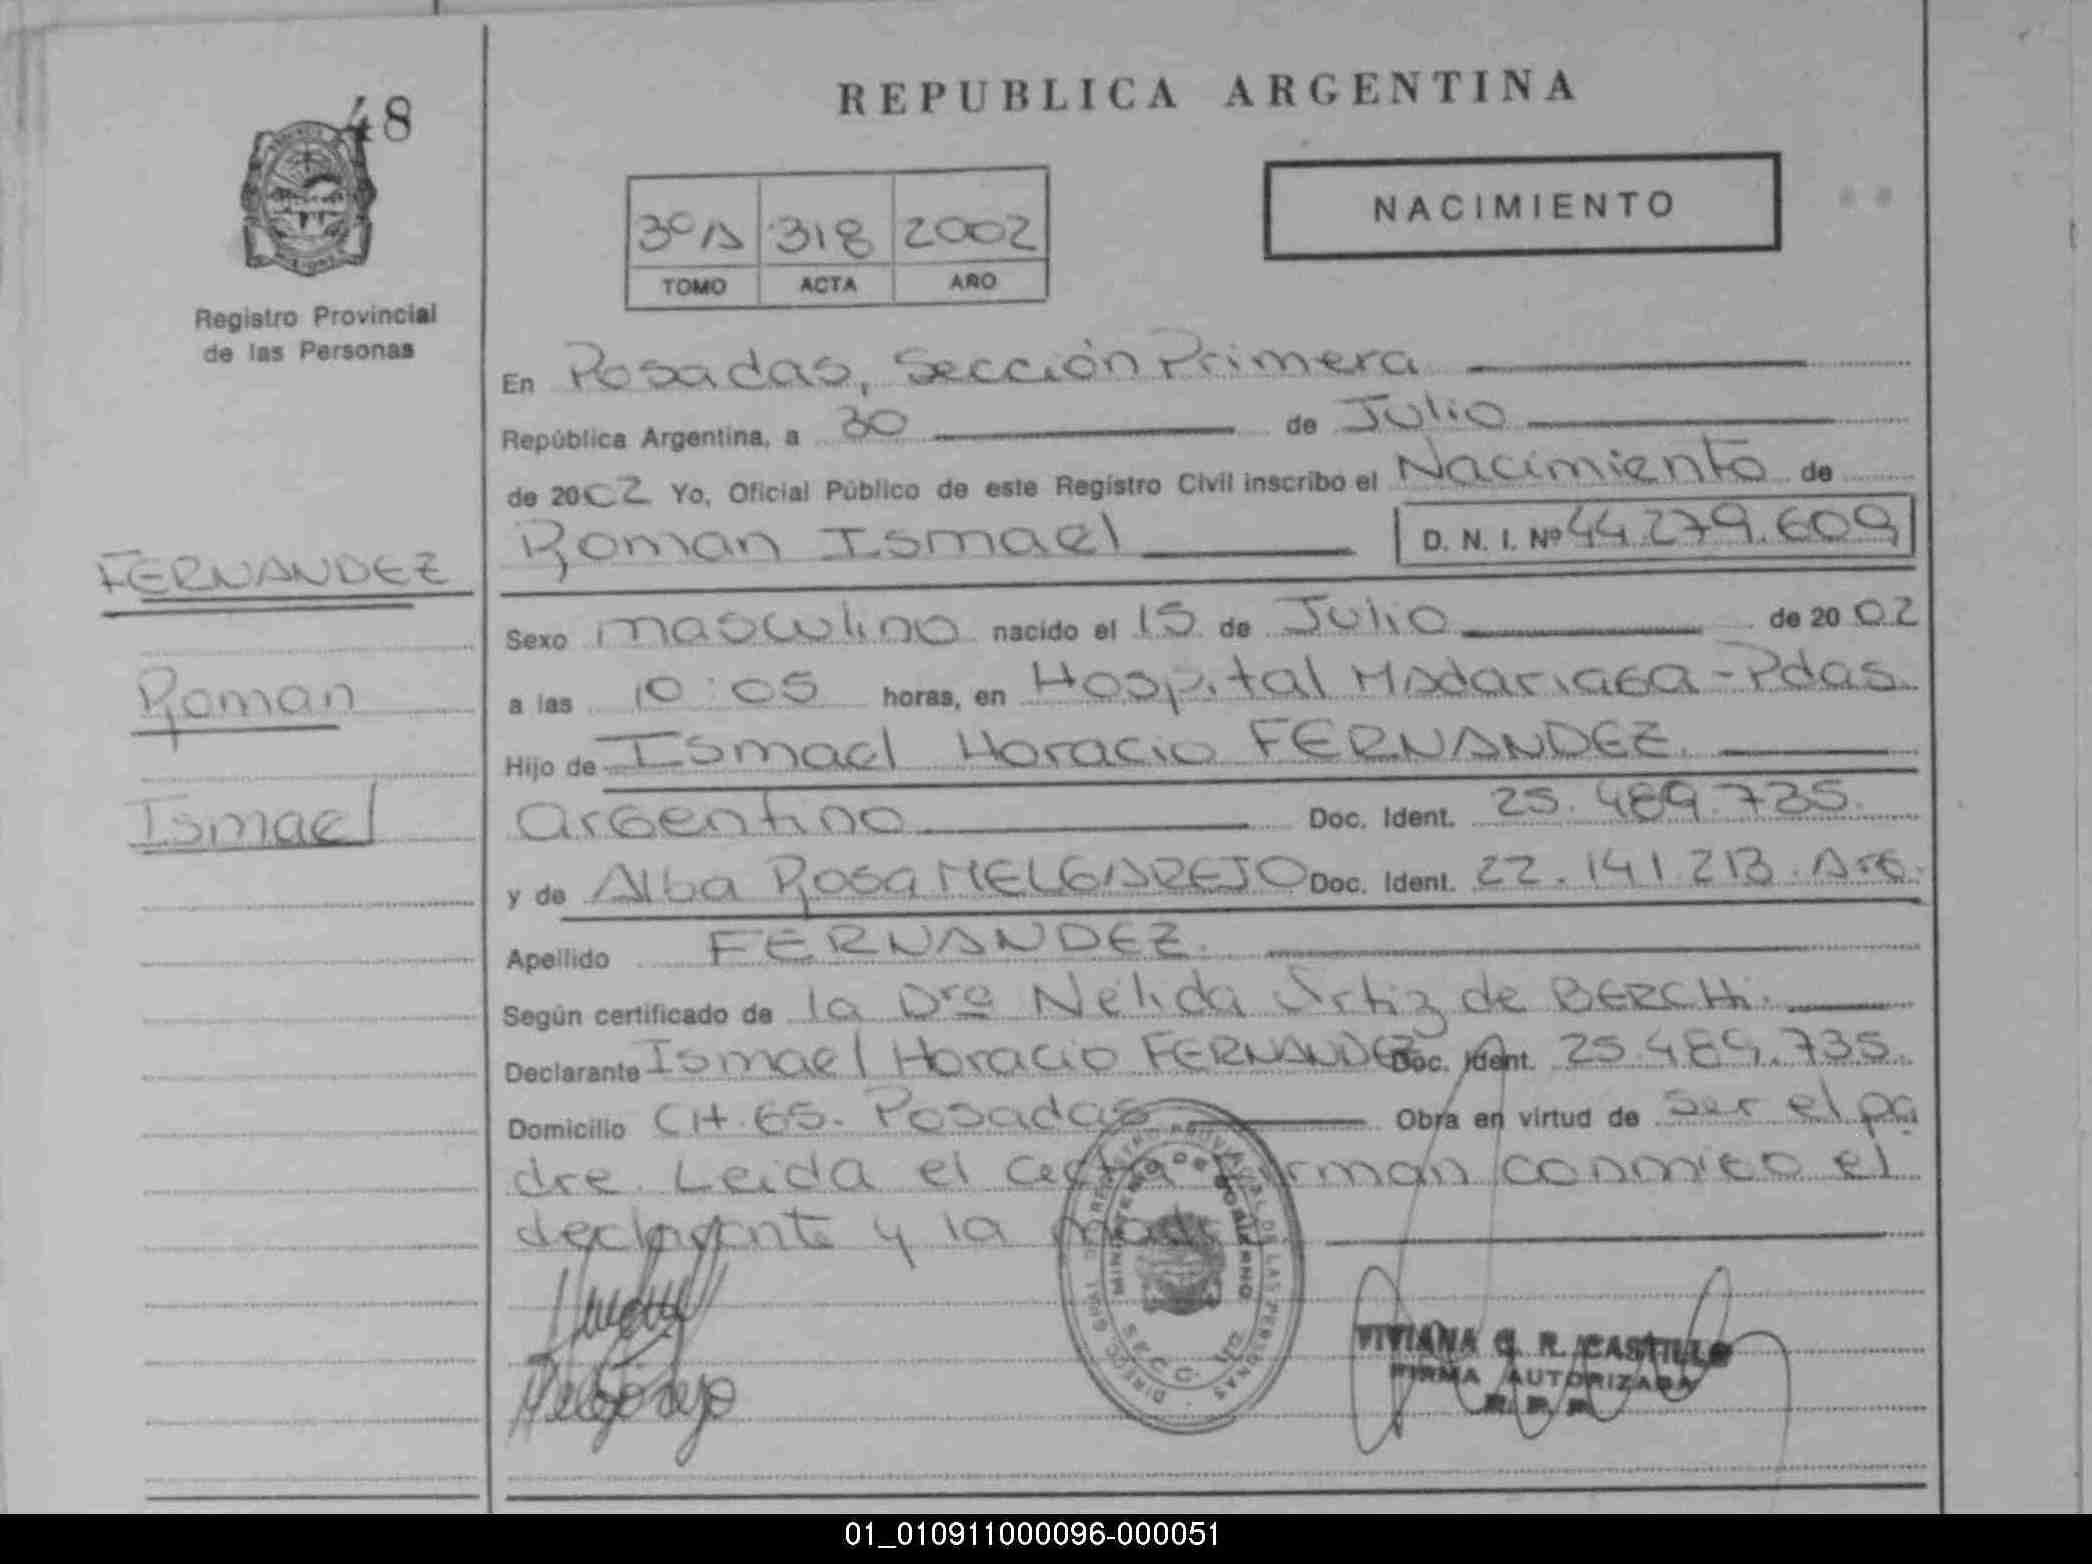 48
REPUBLICA ARGENTINA
NACIMIENTO
3º A 318 2002
TOMO ACTA AÑO
Registro Provincial
de las Personas
En Posadas, Sección Primera
República Argentina, a 30 de Julio
de 2002 Yo, Oficial Público de este Registro Civil inscribo el Nacimiento de
Roman Ismael D. N. I. Nº 44.279.609
FERNANDEZ
Roman
Ismael
Sexo masculino nacido el 15 de Julio de 2002
a las 10:05 horas, en Hospital Madariaga - Pdas.
Hijo de Ismael Horacio FERNANDEZ.
argentino Doc. Ident. 25.489.735.
y de Alba Rosa MELGAREJO Doc. Ident. 22.141.213. Arg.
Apellido FERNANDEZ.
Según certificado de la Dra Nélida Ortiz de BERCHi.
Declarante Ismael Horacio FERNANDEZ Doc. Ident. 25.489.735.
Domicilio CH. 65. Posadas Obra en virtud de ser el pa
dre. Leida el acta firman conmigo el
declarante y la madre
DIREC. GRAL. DE REGISTRO PROVINCIAL DE LAS PERSONAS
MINISTERIO DE GOBIERNO
SECC.
Melgarejo
VIVIANA G. R. CASTILLO
FIRMA AUTORIZADA
R. P. P.
01_010911000096-000051